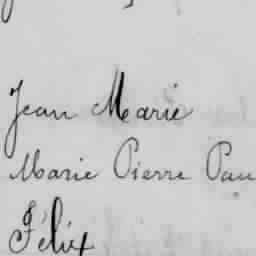 Jean Marie
Marie Pierre Pau
Félix